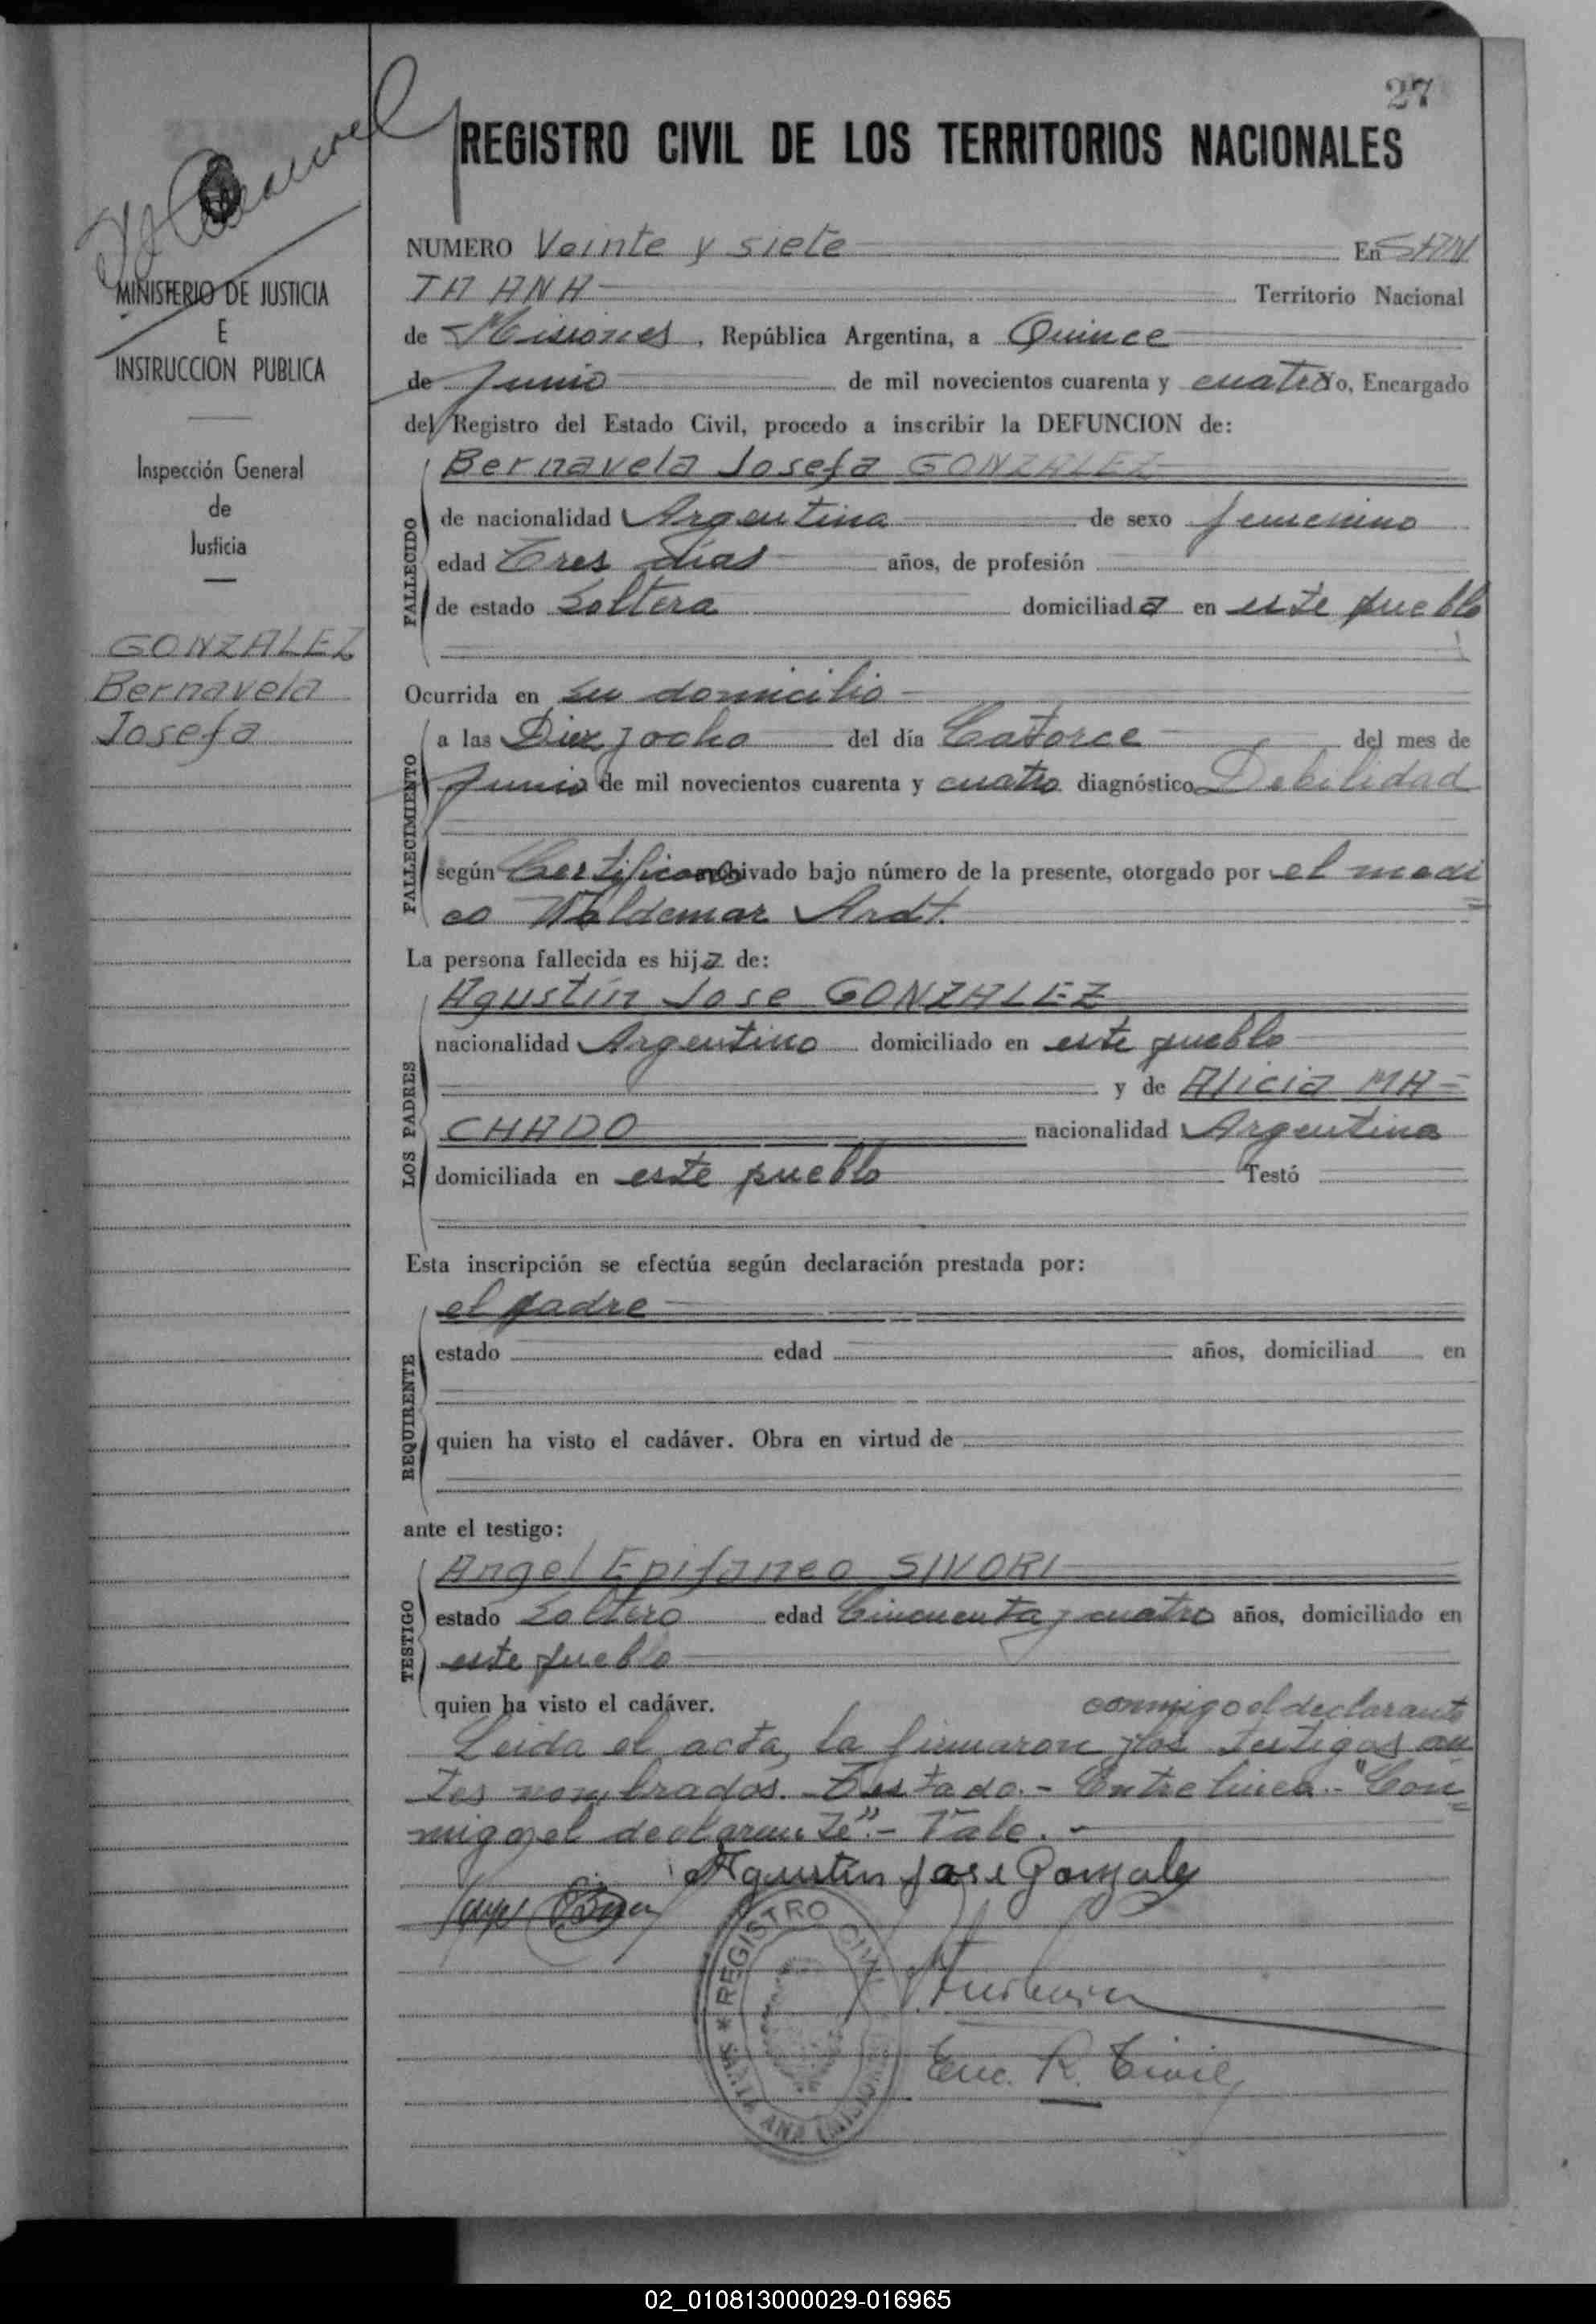 27
REGISTRO CIVIL DE LOS TERRITORIOS NACIONALES
MINISTERIO DE JUSTICIA
E
INSTRUCCION PUBLICA
Inspección General
de
Justicia
GONZALEZ
Bernavela
Josefa
NUMERO Veinte y siete En SAN
TA ANA Territorio Nacional
de Misiones, República Argentina, a Quince
de Junio de mil novecientos cuarenta y cuatro Yo, Encargado
del Registro del Estado Civil, procedo a inscribir la DEFUNCION de:
Bernavela Josefa GONZALEZ
FALLECIDO
de nacionalidad Argentina de sexo femenino
edad Tres dias años, de profesión
de estado Soltera domiciliada en este pueblo
Ocurrida en su domicilio
FALLECIMIENTO
a las Diez y ocho del día Catorce del mes de
Junio de mil novecientos cuarenta y cuatro diagnóstico Debilidad
según Certificado archivado bajo número de la presente, otorgado por el medi
co Waldemar Ardt.
La persona fallecida es hija de:
LOS PADRES
Agustín Jose GONZALEZ
nacionalidad Argentino domiciliado en este pueblo
y de Alicia MA=
CHADO nacionalidad Argentina
domiciliada en este pueblo Testó
Esta inscripción se efectúa según declaración prestada por:
REQUIRENTE
el padre
estado edad años, domiciliad en
quien ha visto el cadáver. Obra en virtud de
ante el testigo:
TESTIGO
Angel Epifaneo SIVORI
estado Soltero edad Cincuenta y cuatro años, domiciliado en
este pueblo
quien ha visto el cadáver. conmigo el declarante
Leida el acta, la firmaron y los testigos an
tes nombrados. Testado.- Entre linea.- "Con=
migo el declarante".- Vale.-
Agustin Jose Gonzalez
REGISTRO CIVIL
SANTA ANA (MISIONES)
Enc. R. Civil
02_010813000029-016965